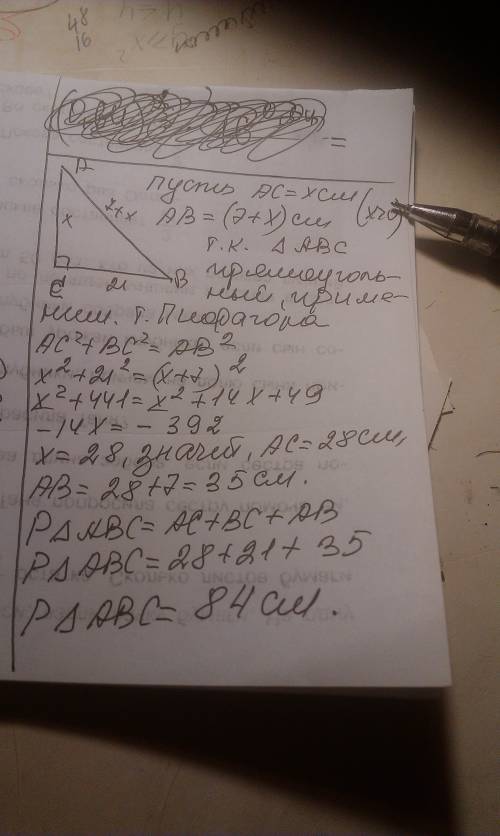 48
16
=
A
x
7+x
C
21
B
пусть AC=xсм (x>0)
AB=(7+x)см
т.к. △ABC
прямоуголь-
ный, приме-
ним. т. Пифагора
AC²+BC²=AB²
x²+21²=(x+7)²
x²+441=x²+14x+49
-14x=-392
x=28, значит, AC=28см,
AB=28+7=35см.
P△ABC=AC+BC+AB
P△ABC=28+21+35
P△ABC=84см.